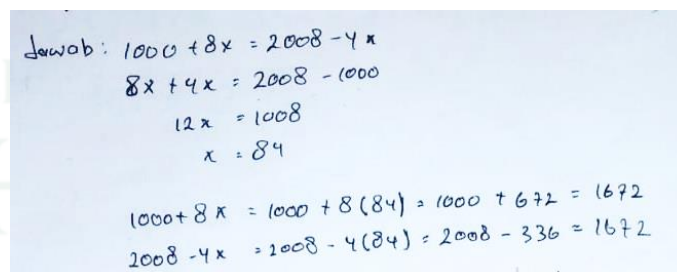 Jawab : 1000 + 8x = 2008 - 4x
8x + 4x = 2008 - 1000
12x = 1008
x = 84
1000 + 8x = 1000 + 8(84) = 1000 + 672 = 1672
2008 - 4x = 2008 - 4(84) = 2008 - 336 = 1672